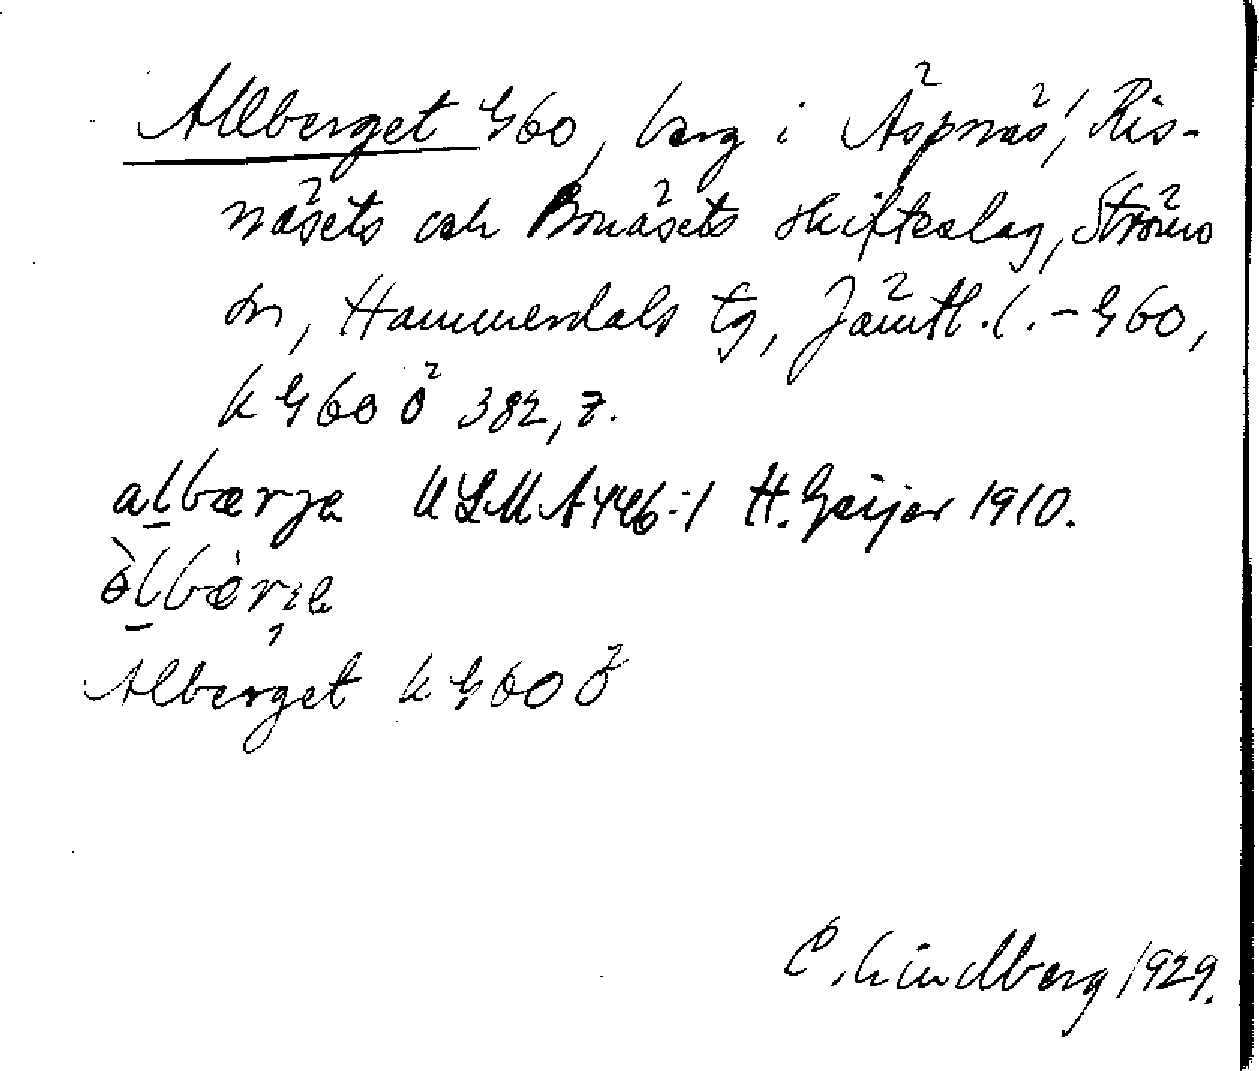 Allberget G60, berg i Äspnäs, Ris-
näsets och Bonäsets skifteslag, Ströms
sn, Hammerdals tg, Jämtl. l. - G60,
k G60 Ö 382, 7.
alba͟rja ULMA 446:1 H. Geijer 1910.
Alberget k G60 Ö
C. Lindberg 1929.